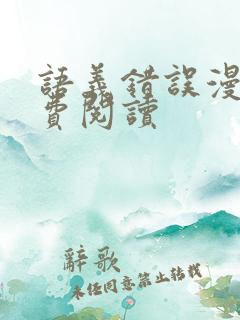 語義錯誤漫
費閱讀
辭歌
未经同意禁止转载